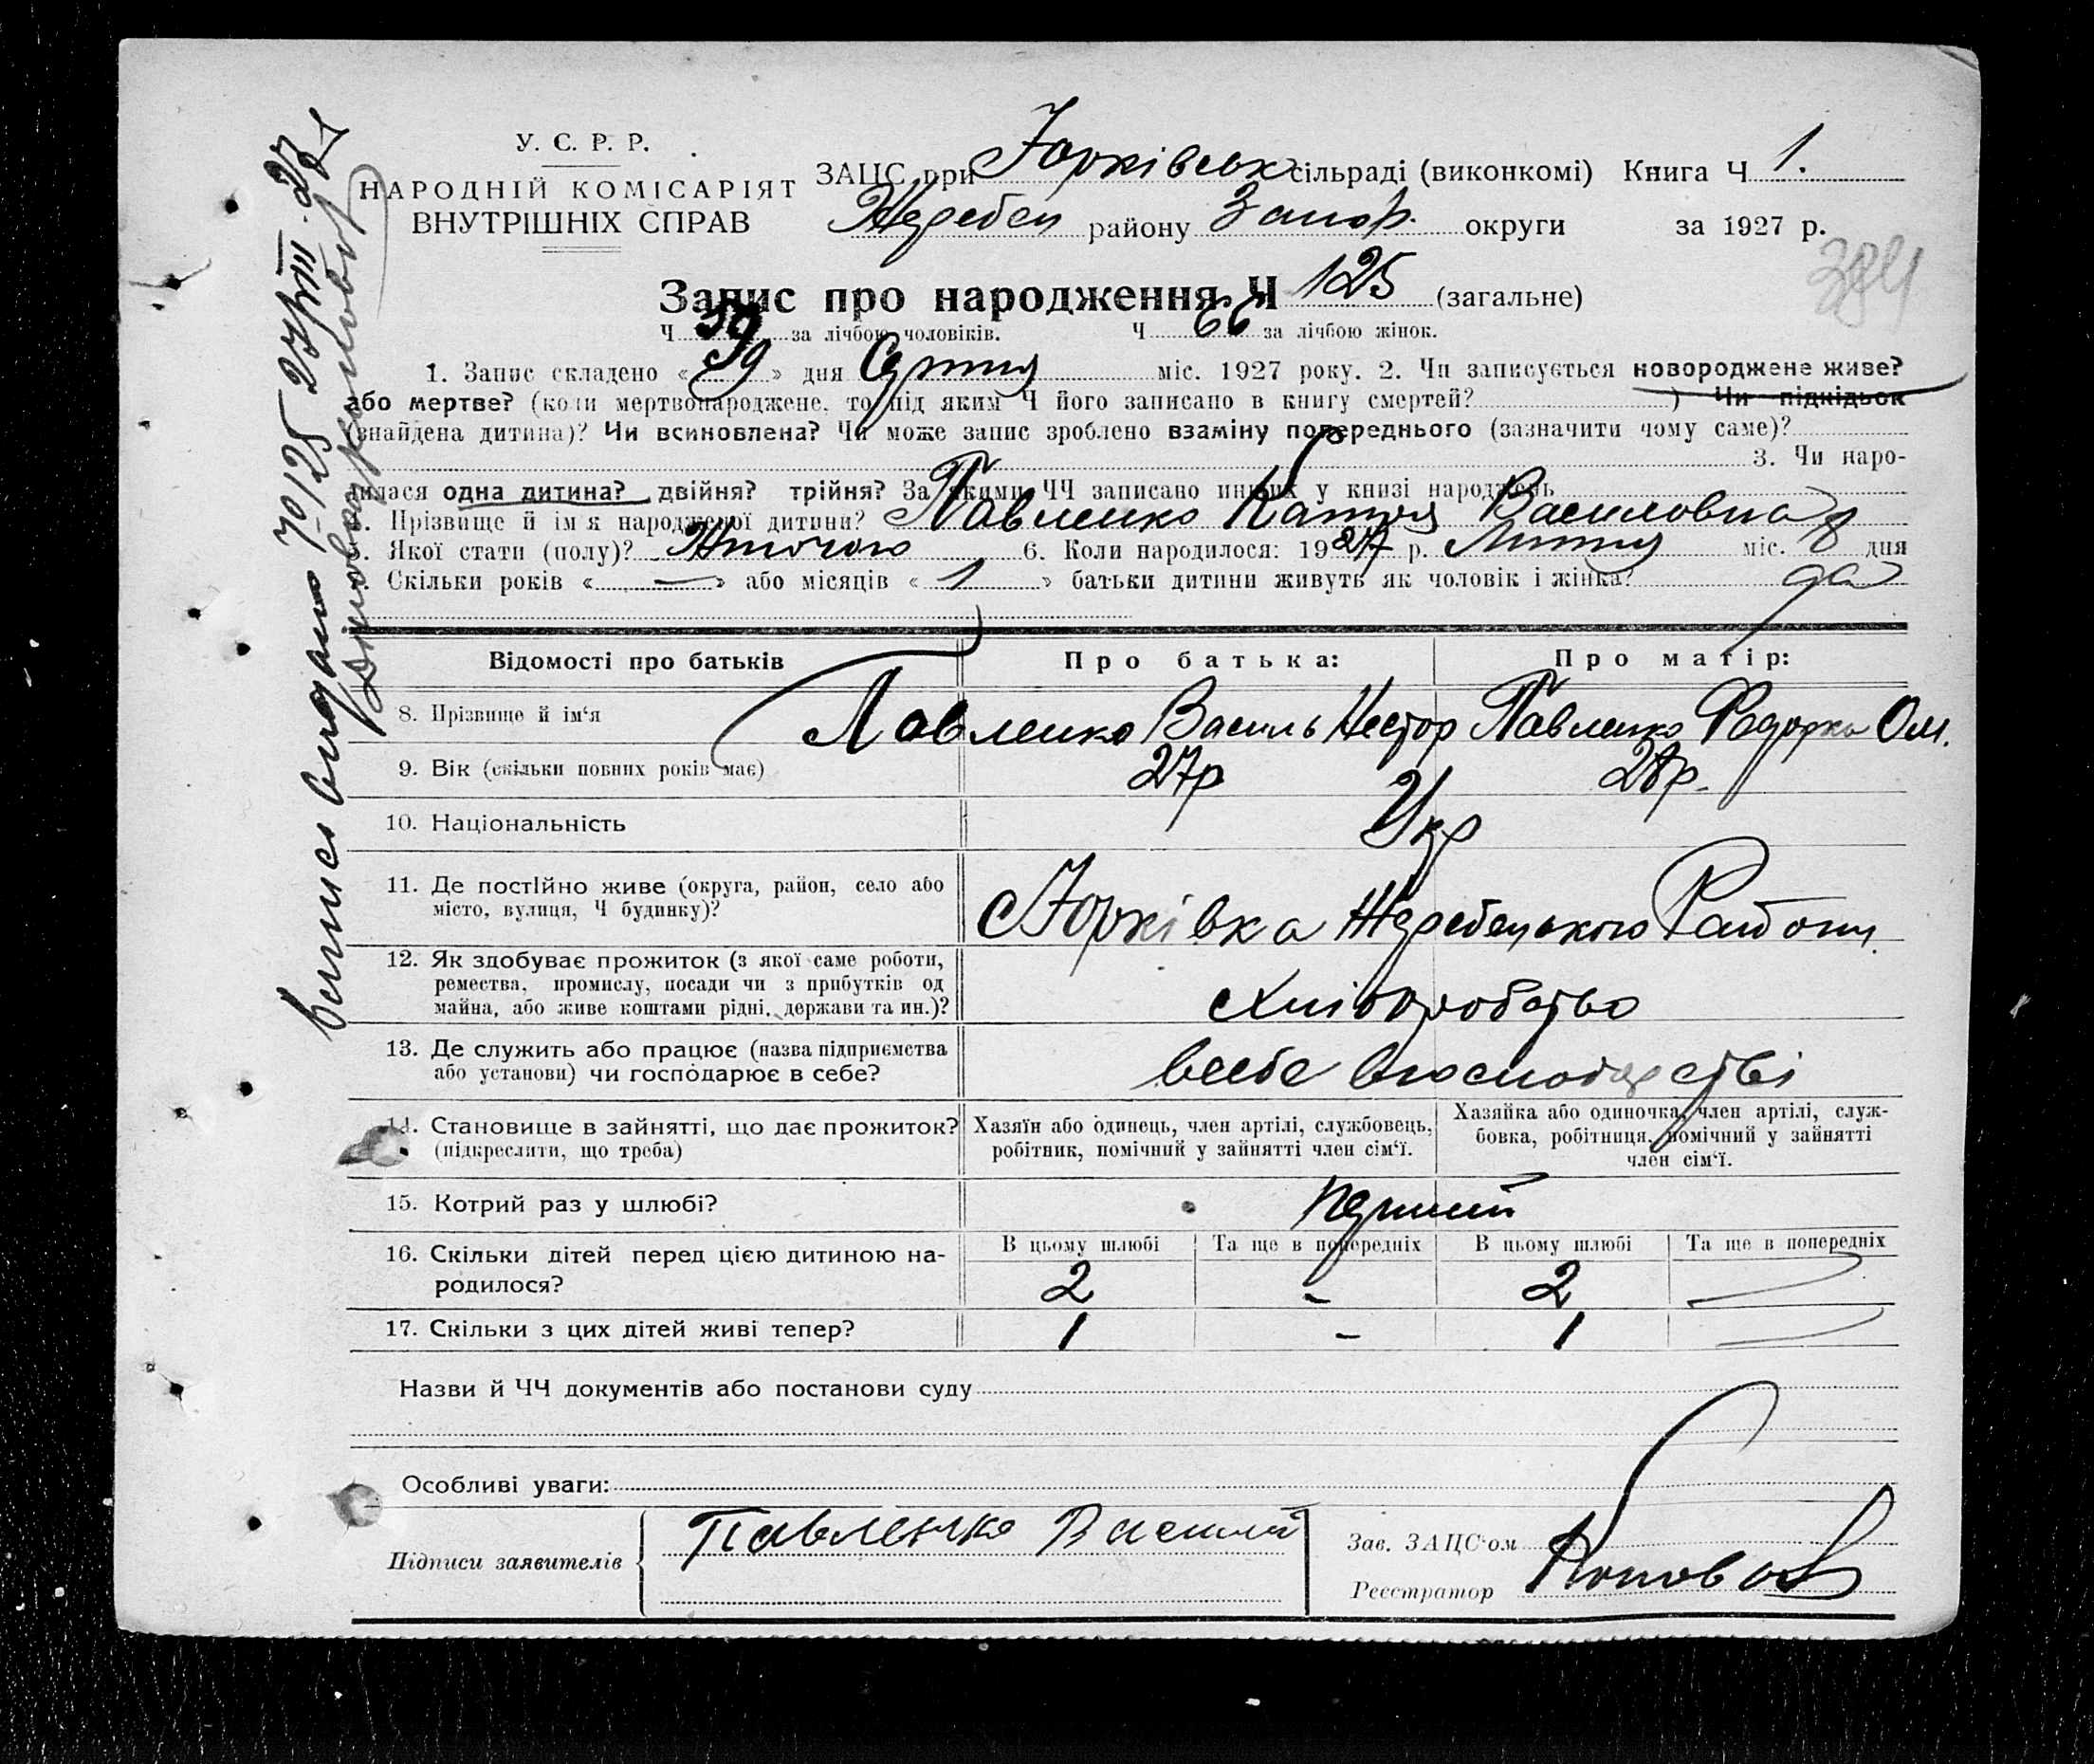 У. С. Р. Р.
НАРОДНІЙ КОМІСАРІЯТ
ВНУТРІШНІХ СПРАВ
ЗАЦС при Юрківськ сільраді (виконкомі) Книга Ч 1.
Жеребец району Запор. округи за 1927 р.
384
Запис про народження Ч 125 (загальне)
Ч 59 за лічбою чоловіків. Ч 66 за лічбою жінок.
1. Запис складено « 9 » дня Серпня міс. 1927 року. 2. Чи записується новороджене живе?
або мертве? (коли мертвонароджене, то під яким Ч його записано в книгу смертей? ) Чи підкідьок
(знайдена дитина)? Чи всиновлена? Чи може запис зроблено взаміну попереднього (зазначити чому саме)?
3. Чи наро-
дилася одна дитина? двійня? трійня? За якими ЧЧ записано инших у книзі народжень
4. Прізвище й ім'я народженої дитини? Павленко Катря Василовна
5. Якої стати (полу)? Жіночою 6. Коли народилося: 1927 р. Липня міс. 8 дня
Скільки років « — » або місяців « 1 » батьки дитини живуть як чоловік і жінка? да
Відомості про батьків Про батька: Про матір:
8. Прізвище й ім'я Павленко Василь Нестор Павленко Федорка Ом.
9. Вік (скільки повних років має) 27р 28р.
10. Національність Укр
11. Де постійно живе (округа, район, село або
місто, вулиця, Ч будинку)? Юрківка Жеребецького Району.
12. Як здобуває прожиток (з якої саме роботи,
ремества, промислу, посади чи з прибутків од
майна, або живе коштами рідні, держави та ин.)? хліборобство
13. Де служить або працює (назва підприємства
або установи) чи господарює в себе? всебе вгосподарстві
14. Становище в зайнятті, що дає прожиток?
(підкреслити, що треба)
Хазяїн або одинець, член артілі, службовець,
робітник, помічний у зайнятті член сім'ї.
Хазяйка або одиночка, член артілі, служ-
бовка, робітниця, помічний у зайнятті
член сім'ї.
15. Котрий раз у шлюбі? перший
16. Скільки дітей перед цією дитиною на-
родилося?
В цьому шлюбі Та ще в попередніх В цьому шлюбі Та ще в попередніх
2 - 2 —
17. Скільки з цих дітей живі тепер? 1 - 1 —
Назви й ЧЧ документів або постанови суду
Особливі уваги:
Підписи заявителів Павленко Василий
Зав. ЗАЦС'ом
Реєстратор